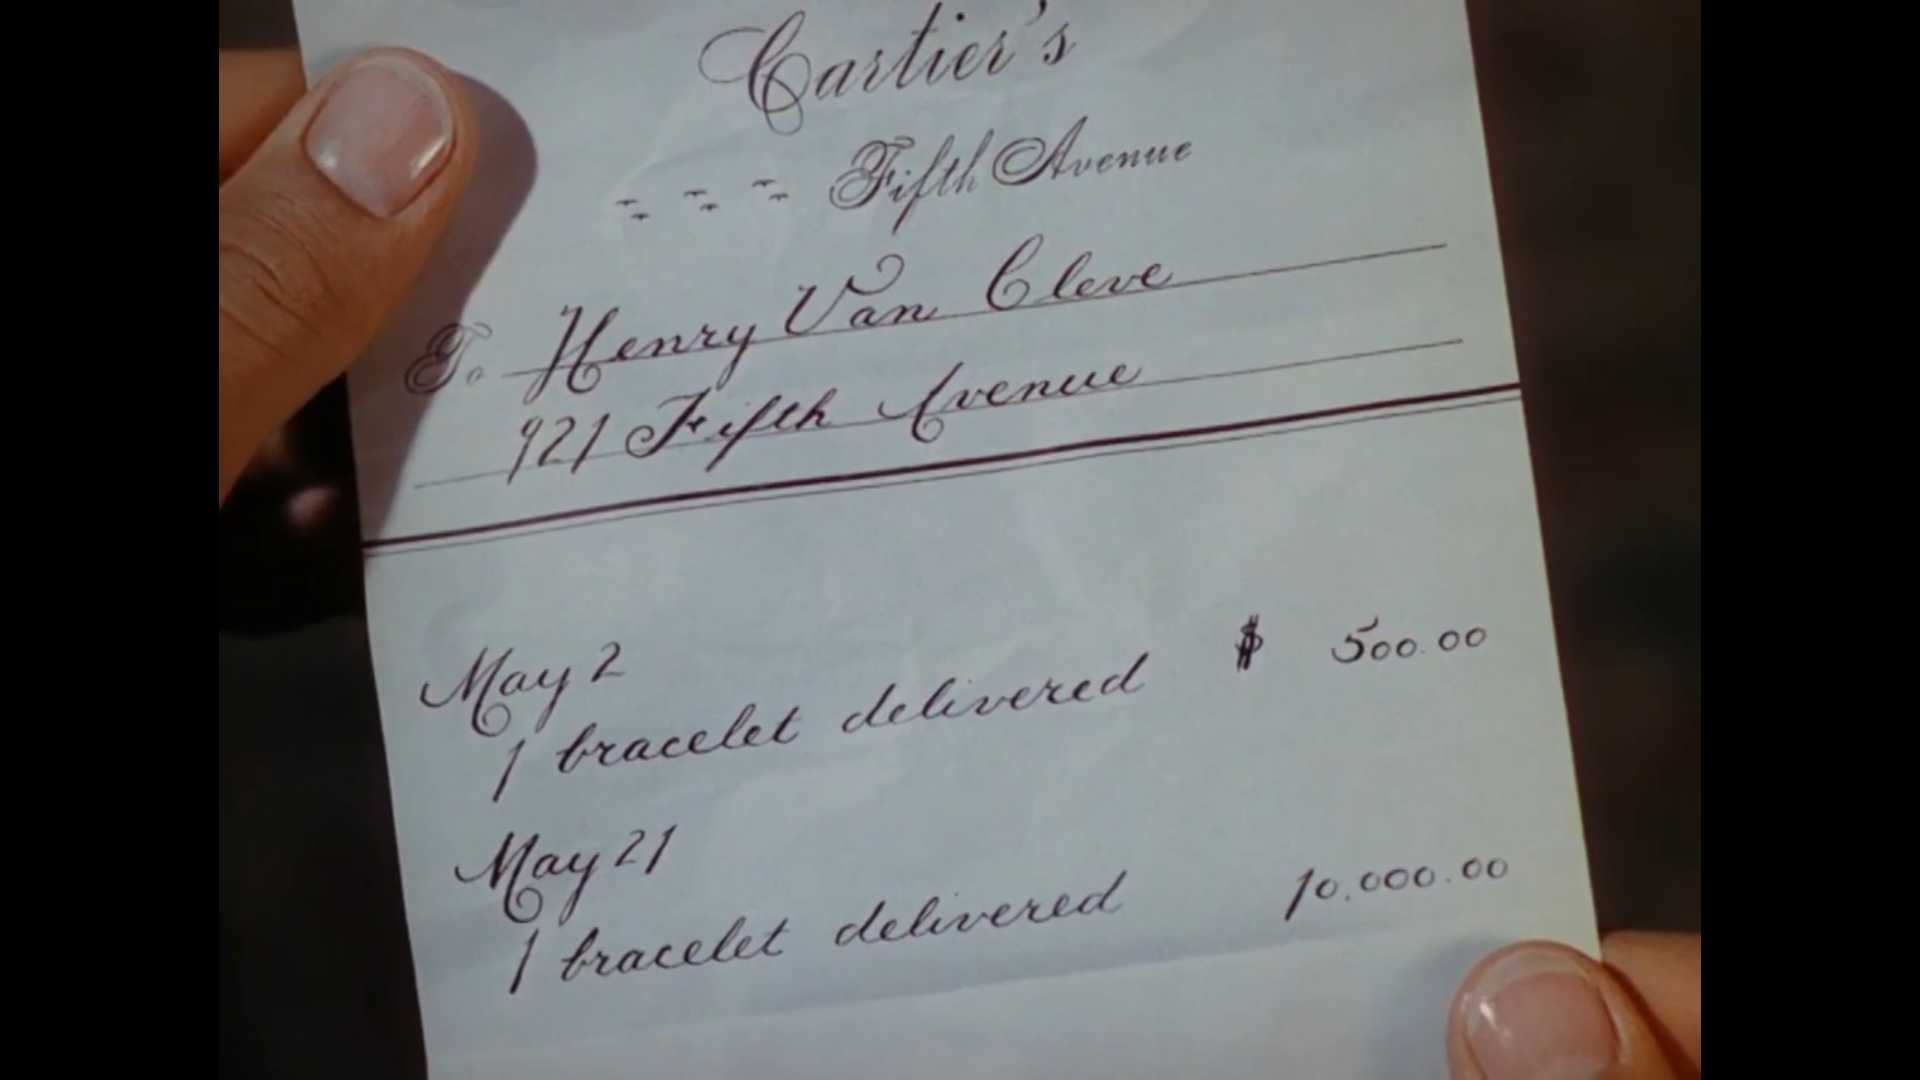 Cartier's
Fifth Avenue
To Henry Van Cleve
921 Fifth Avenue
May 2
1 bracelet delivered $ 500.00
May 21
1 bracelet delivered 10,000.00